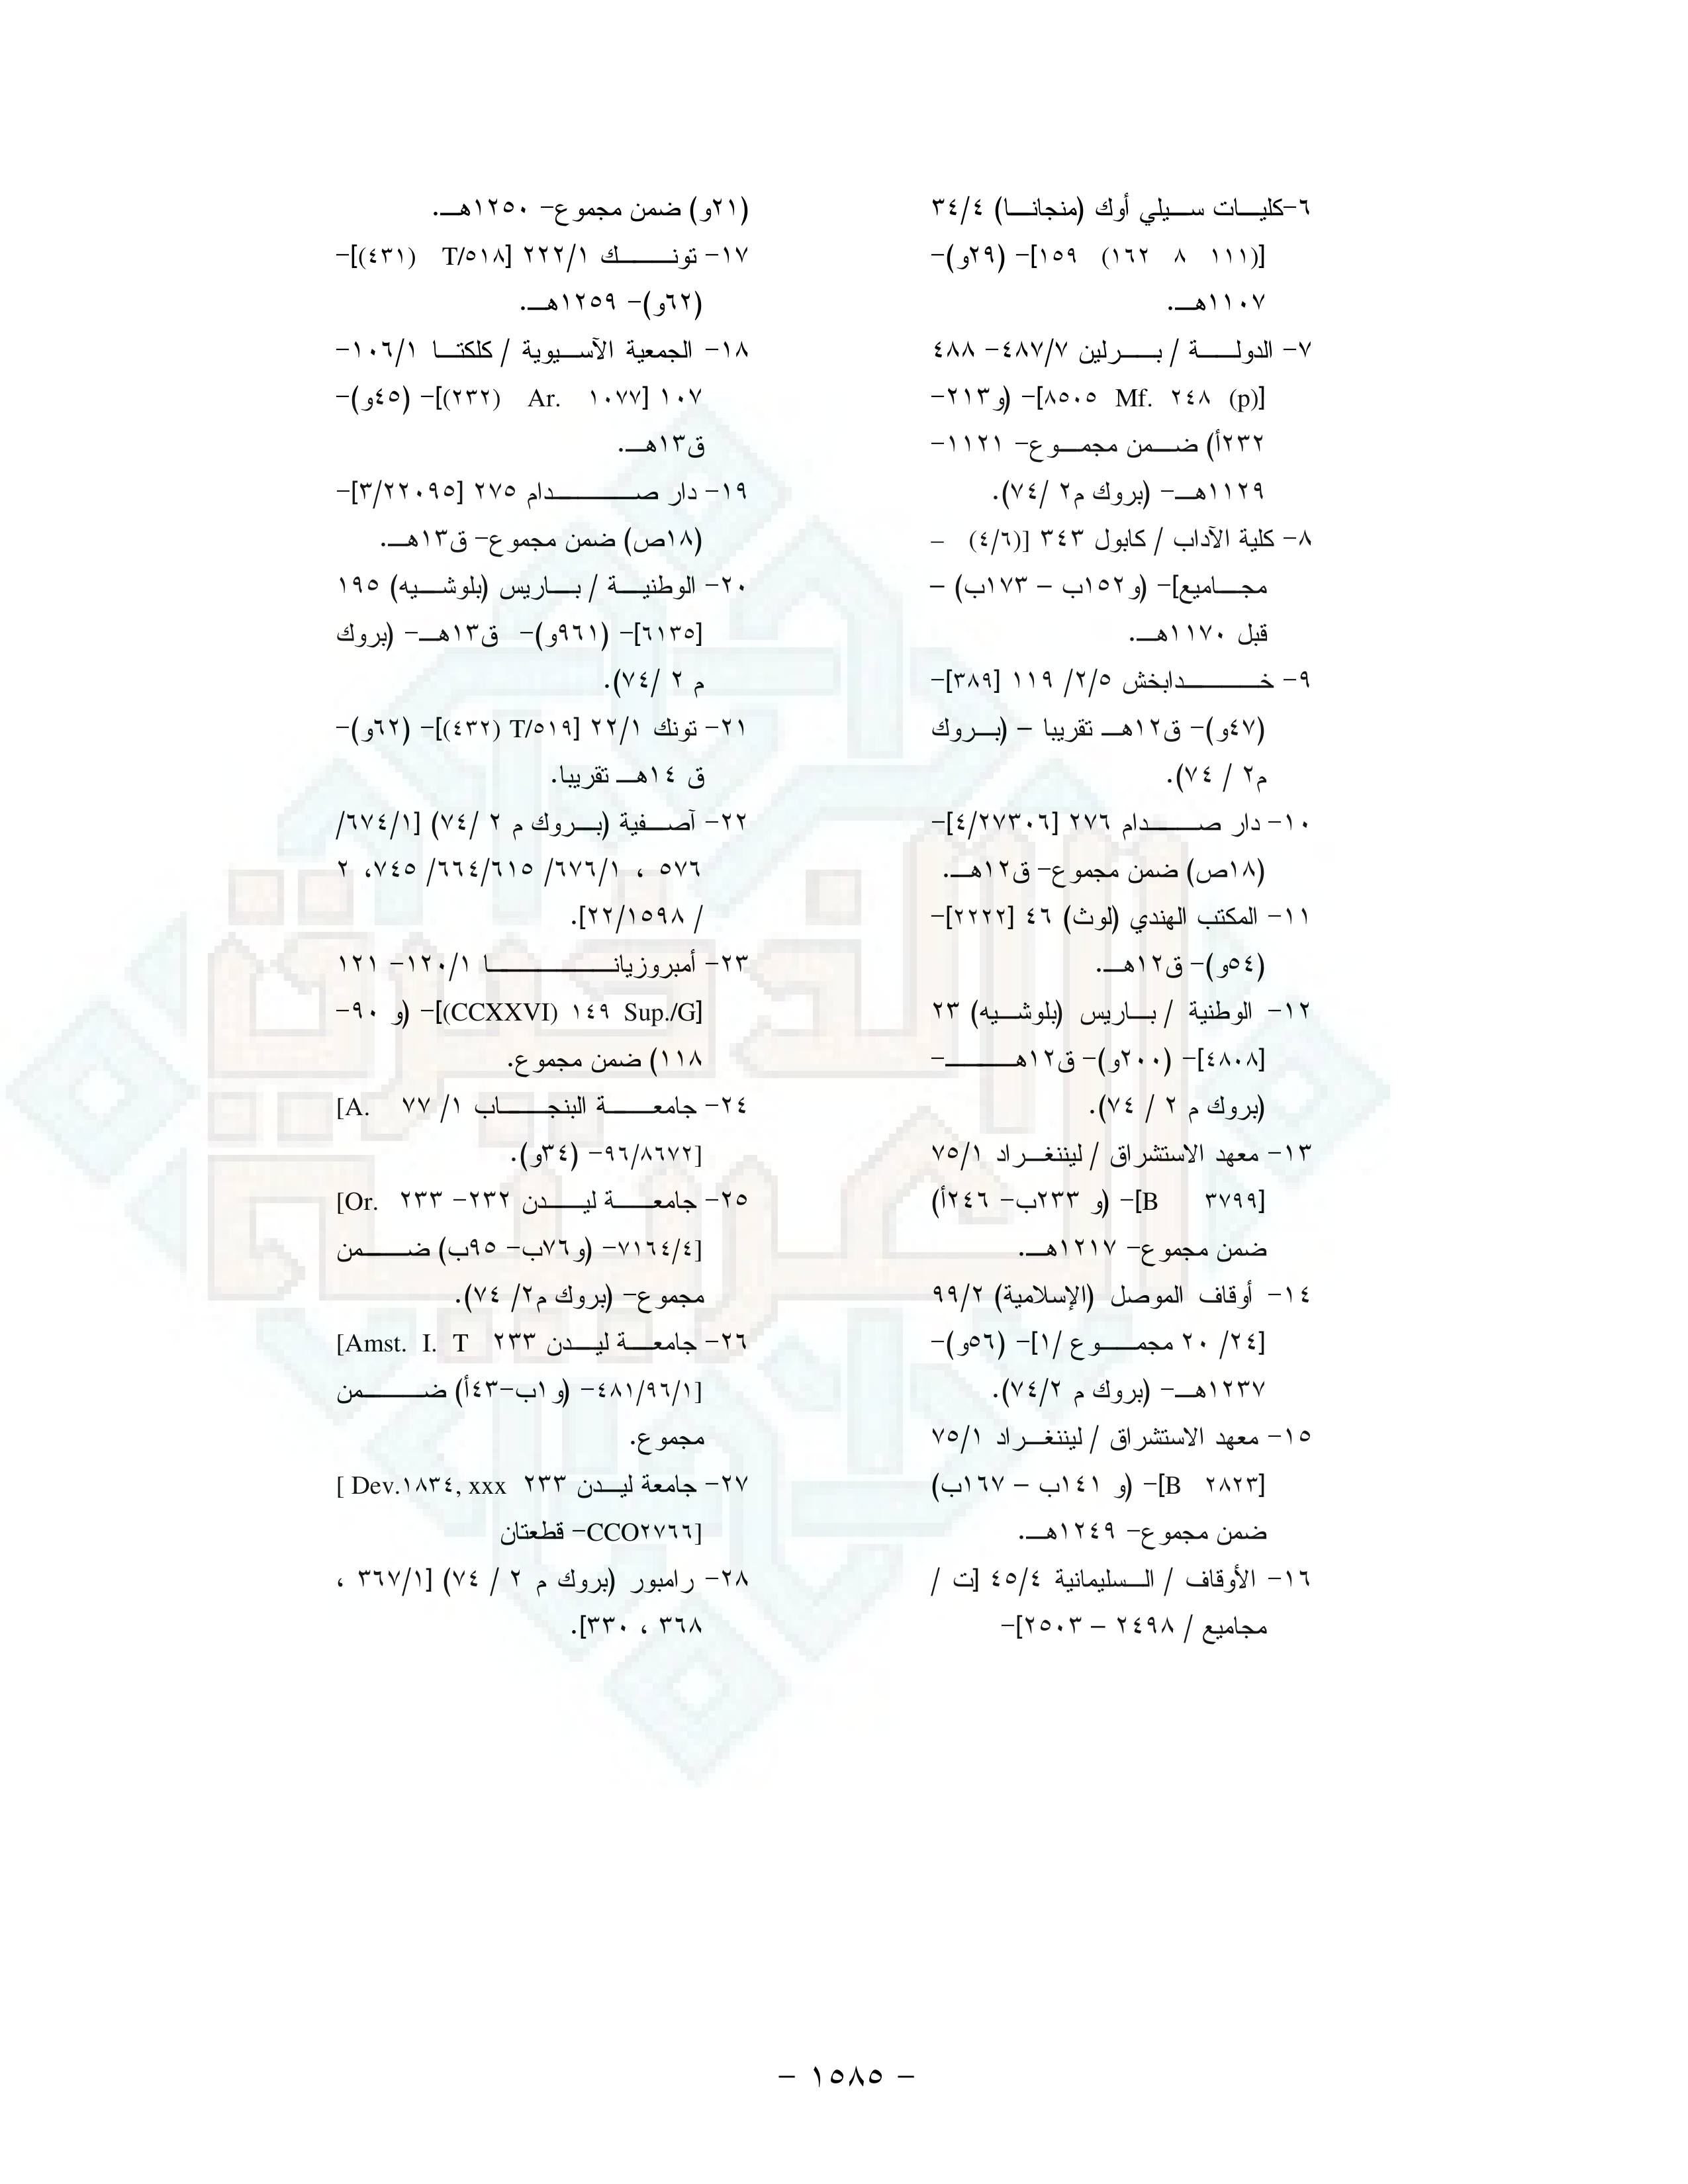 ٦-كليات سيلي أوك (منجانا) ٣٤/٤
[(١١١ ٨ ١٦٢) ١٥٩]- (٢٩و)-
١١٠٧هـ.
٧- الدولة / برلين ٤٨٧/٧- ٤٨٨
[(p) ٢٤٨ .Mf ٨٥٠٥]- (و٢١٣-
٢٣٢أ) ضمن مجموع- ١١٢١-
١١٢٩هـ- (بروك م٢ /٧٤).
٨- كلية الآداب / كابول ٣٤٣ [(٤/٦) –
مجاميع]- (و١٥٢ب – ١٧٣ب) –
قبل ١١٧٠هـ.
٩- خدابخش ٢/٥/ ١١٩ [٣٨٩]-
(٤٧و)- ق١٢هـ تقريبا – (بروك
م٢ / ٧٤).
١٠- دار صدام ٢٧٦ [٤/٢٧٣٠٦]-
(١٨ص) ضمن مجموع- ق١٢هـ.
١١- المكتب الهندي (لوث) ٤٦ [٢٢٢٢]-
(٥٤و)- ق١٢هـ.
١٢- الوطنية / باريس (بلوشيه) ٢٣
[٤٨٠٨]- (٢٠٠و)- ق١٢هـ-
(بروك م ٢ / ٧٤).
١٣- معهد الاستشراق / ليننغراد ٧٥/١
[٣٧٩٩ B]- (و ٢٣٣ب- ٢٤٦أ)
ضمن مجموع- ١٢١٧هـ.
١٤- أوقاف الموصل (الإسلامية) ٩٩/٢
[٢٤/ ٢٠ مجموع /١]- (٥٦و)-
١٢٣٧هـ- (بروك م ٧٤/٢).
١٥- معهد الاستشراق / ليننغراد ٧٥/١
[٢٨٢٣ B]- (و ١٤١ب – ١٦٧ب)
ضمن مجموع- ١٢٤٩هـ.
١٦- الأوقاف / السليمانية ٤٥/٤ [ت /
مجاميع / ٢٤٩٨ – ٢٥٠٣]-
(٢١و) ضمن مجموع- ١٢٥٠هـ.
١٧- تونك ٢٢٢/١ [T/٥١٨ (٤٣١)]-
(٦٢و)- ١٢٥٩هـ.
١٨- الجمعية الآسيوية / كلكتا ١٠٦/١-
١٠٧ [١٠٧٧ .Ar (٢٣٢)]- (٤٥و)-
ق١٣هـ.
١٩- دار صدام ٢٧٥ [٣/٢٢٠٩٥]-
(١٨ص) ضمن مجموع- ق١٣هـ.
٢٠- الوطنية / باريس (بلوشيه) ١٩٥
[٦١٣٥]- (٩٦١و)- ق١٣هـ- (بروك
م ٢ /٧٤).
٢١- تونك ٢٢/١ [T/٥١٩ (٤٣٢)]- (٦٢و)-
ق ١٤هـ تقريبا.
٢٢- آصفية (بروك م ٢ /٧٤) [٦٧٤/١/
٥٧٦ ، ٦٧٦/١/ ٦٦٤/٦١٥/ ٧٤٥، ٢
/ ٢٢/١٥٩٨].
٢٣- أمبروزيانا ١٢٠/١- ١٢١
[Sup./G ١٤٩ (CCXXVI)]- (و ٩٠-
١١٨) ضمن مجموع.
٢٤- جامعة البنجاب ١/ ٧٧ [A.
٩٦/٨٦٧٢]- (٣٤و).
٢٥- جامعة ليدن ٢٣٢- ٢٣٣ [Or.
٧١٦٤/٤]- (و٧٦ب- ٩٥ب) ضمن
مجموع- (بروك م٢/ ٧٤).
٢٦- جامعة ليدن ٢٣٣ [Amst. I. T
٤٨١/٩٦/١]- (و١ب-٤٣أ) ضمن
مجموع.
٢٧- جامعة ليدن ٢٣٣ [ Dev.١٨٣٤, xxx
CCO٢٧٦٦]- قطعتان
٢٨- رامبور (بروك م ٢ / ٧٤) [٣٦٧/١ ،
٣٦٨ ، ٣٣٠].
- ١٥٨٥ -